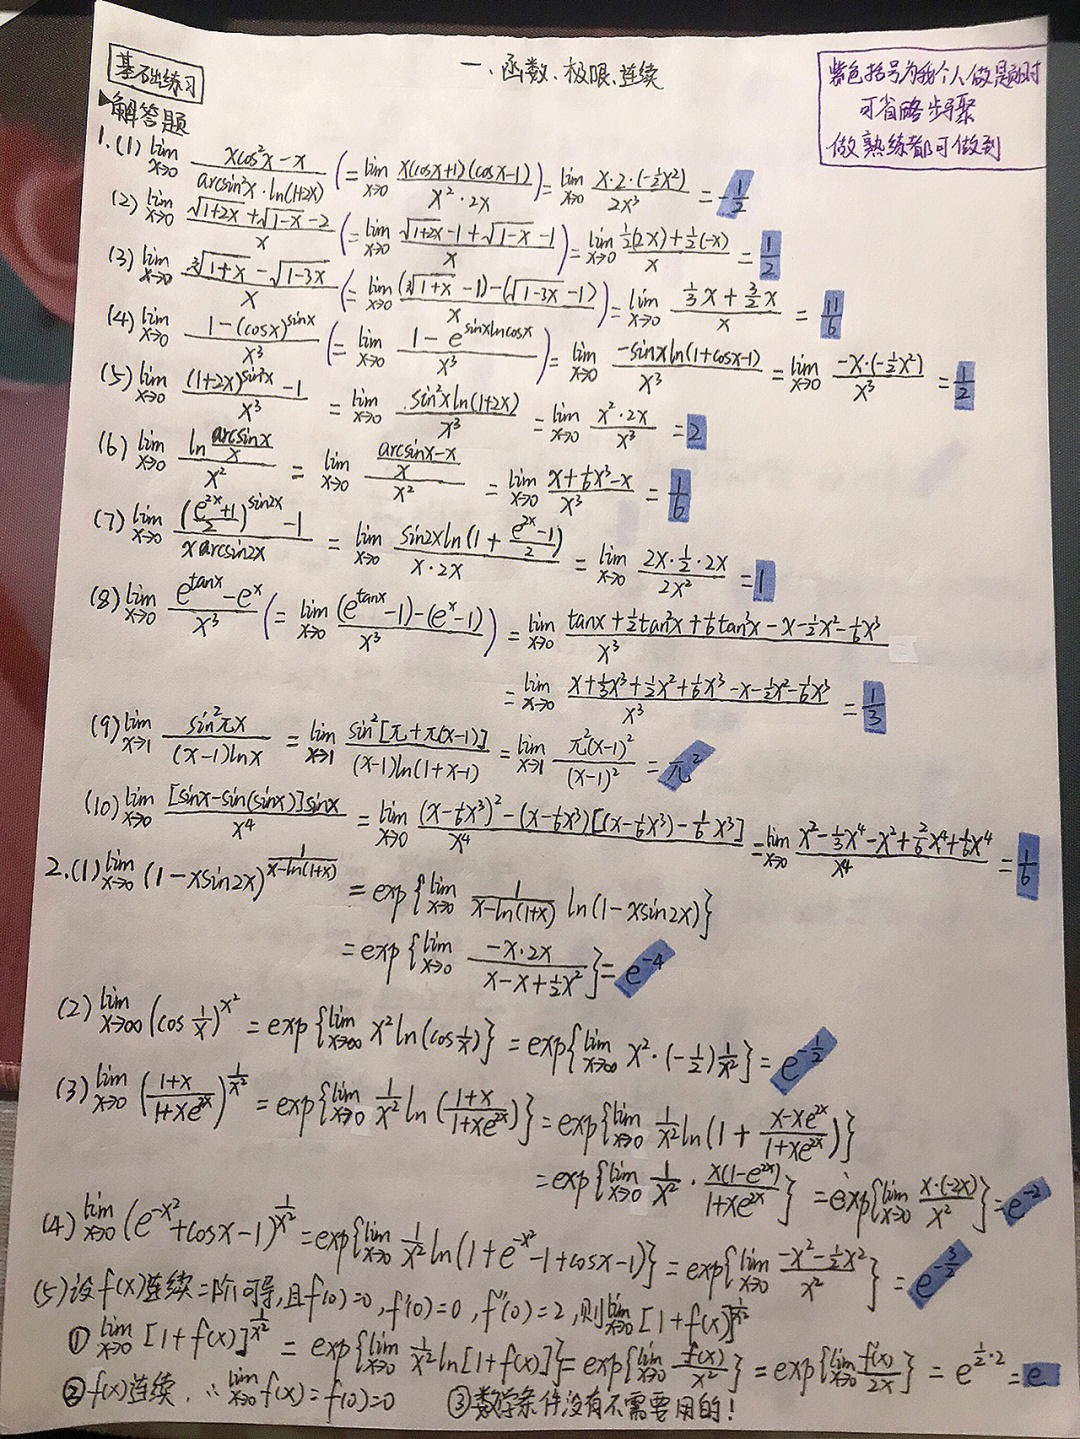 一、函数、极限、连续
基础练习
紫色括号为我个人做题时
可省略步骤
做熟练都可做到
▶解答题
1.(1) lim x→0 (xcos²x − x)/(arcsin²x · ln(1+2x)) (= lim x→0 x(cosx+1)(cosx−1)/(x²·2x)) = lim x→0 x·2·(−½x²)/(2x³) = −1/2
(2) lim x→0 (√(1+2x) + √(1−x) − 2)/x (= lim x→0 (√(1+2x) − 1 + √(1−x) − 1)/x) = lim x→0 (½(2x) + ½(−x))/x = 1/2
(3) lim x→0 (∛(1+x) − √(1−3x))/x (= lim x→0 ((∛(1+x) − 1) − (√(1−3x) − 1))/x) = lim x→0 (⅓x + 3/2 x)/x = 11/6
(4) lim x→0 (1 − (cosx)^sinx)/x³ (= lim x→0 (1 − e^(sinxlncosx))/x³) = lim x→0 −sinxln(1+cosx−1)/x³ = lim x→0 −x·(−½x²)/x³ = 1/2
(5) lim x→0 ((1+2x)^(sin²x) − 1)/x³ = lim x→0 sin²xln(1+2x)/x³ = lim x→0 x²·2x/x³ = 2
(6) lim x→0 ln(arcsinx/x)/x² = lim x→0 ((arcsinx−x)/x)/x² = lim x→0 (x+⅙x³−x)/x³ = 1/6
(7) lim x→0 (((e^(2x)+1)/2)^(sin2x) − 1)/(xarcsin2x) = lim x→0 sin2xln(1 + (e^(2x)−1)/2)/(x·2x) = lim x→0 (2x·½·2x)/(2x²) = 1
(8) lim x→0 (e^tanx − e^x)/x³ (= lim x→0 ((e^tanx −1) − (e^x −1))/x³) = lim x→0 (tanx + ½tan²x + ⅙tan³x − x − ½x² − ⅙x³)/x³
= lim x→0 (x+⅓x³+½x²+⅙x³−x−½x²−⅙x³)/x³ = 1/3
(9) lim x→1 sin²πx/((x−1)lnx) = lim x→1 sin²[π+π(x−1)]/((x−1)ln(1+x−1)) = lim x→1 π²(x−1)²/(x−1)² = π²
(10) lim x→0 [sinx−sin(sinx)]sinx/x⁴ = lim x→0 ((x−⅙x³)² − (x−⅙x³)[(x−⅙x³)−⅙x³])/x⁴ = lim x→0 (x²−⅓x⁴−x²+2/6x⁴+⅙x⁴)/x⁴ = 1/6
2.(1) lim x→0 (1−xsin2x)^(1/(x−ln(1+x))) = exp{lim x→0 1/(x−ln(1+x)) ln(1−xsin2x)}
= exp{lim x→0 −x·2x/(x−x+½x²)} = e^(−4)
(2) lim x→∞ (cos 1/x)^(x²) = exp{lim x→∞ x²ln(cos 1/x)} = exp{lim x→∞ x²·(−½)1/x²} = e^(−1/2)
(3) lim x→0 ((1+x)/(1+xe^(2x)))^(1/x²) = exp{lim x→0 1/x² ln((1+x)/(1+xe^(2x)))} = exp{lim x→0 1/x² ln(1 + (x−xe^(2x))/(1+xe^(2x)))}
= exp{lim x→0 1/x² · x(1−e^(2x))/(1+xe^(2x))} = exp{lim x→0 x·(−2x)/x²} = e^(−2)
(4) lim x→0 (e^(−x²)+cosx−1)^(1/x²) = exp{lim x→0 1/x² ln(1+e^(−x²)−1+cosx−1)} = exp{lim x→0 (−x²−½x²)/x²} = e^(−3/2)
(5) 设f(x)连续二阶可导,且f(0)=0,f'(0)=0,f''(0)=2,则lim x→0 [1+f(x)]^(1/x²)
① lim x→0 [1+f(x)]^(1/x²) = exp{lim x→0 1/x² ln[1+f(x)]} = exp{lim x→0 f(x)/x²} = exp{lim x→0 f'(x)/2x} = e^(½·2) = e
② f(x)连续,∴ lim x→0 f(x)=f(0)=0 ③数学条件没有不需要用的!